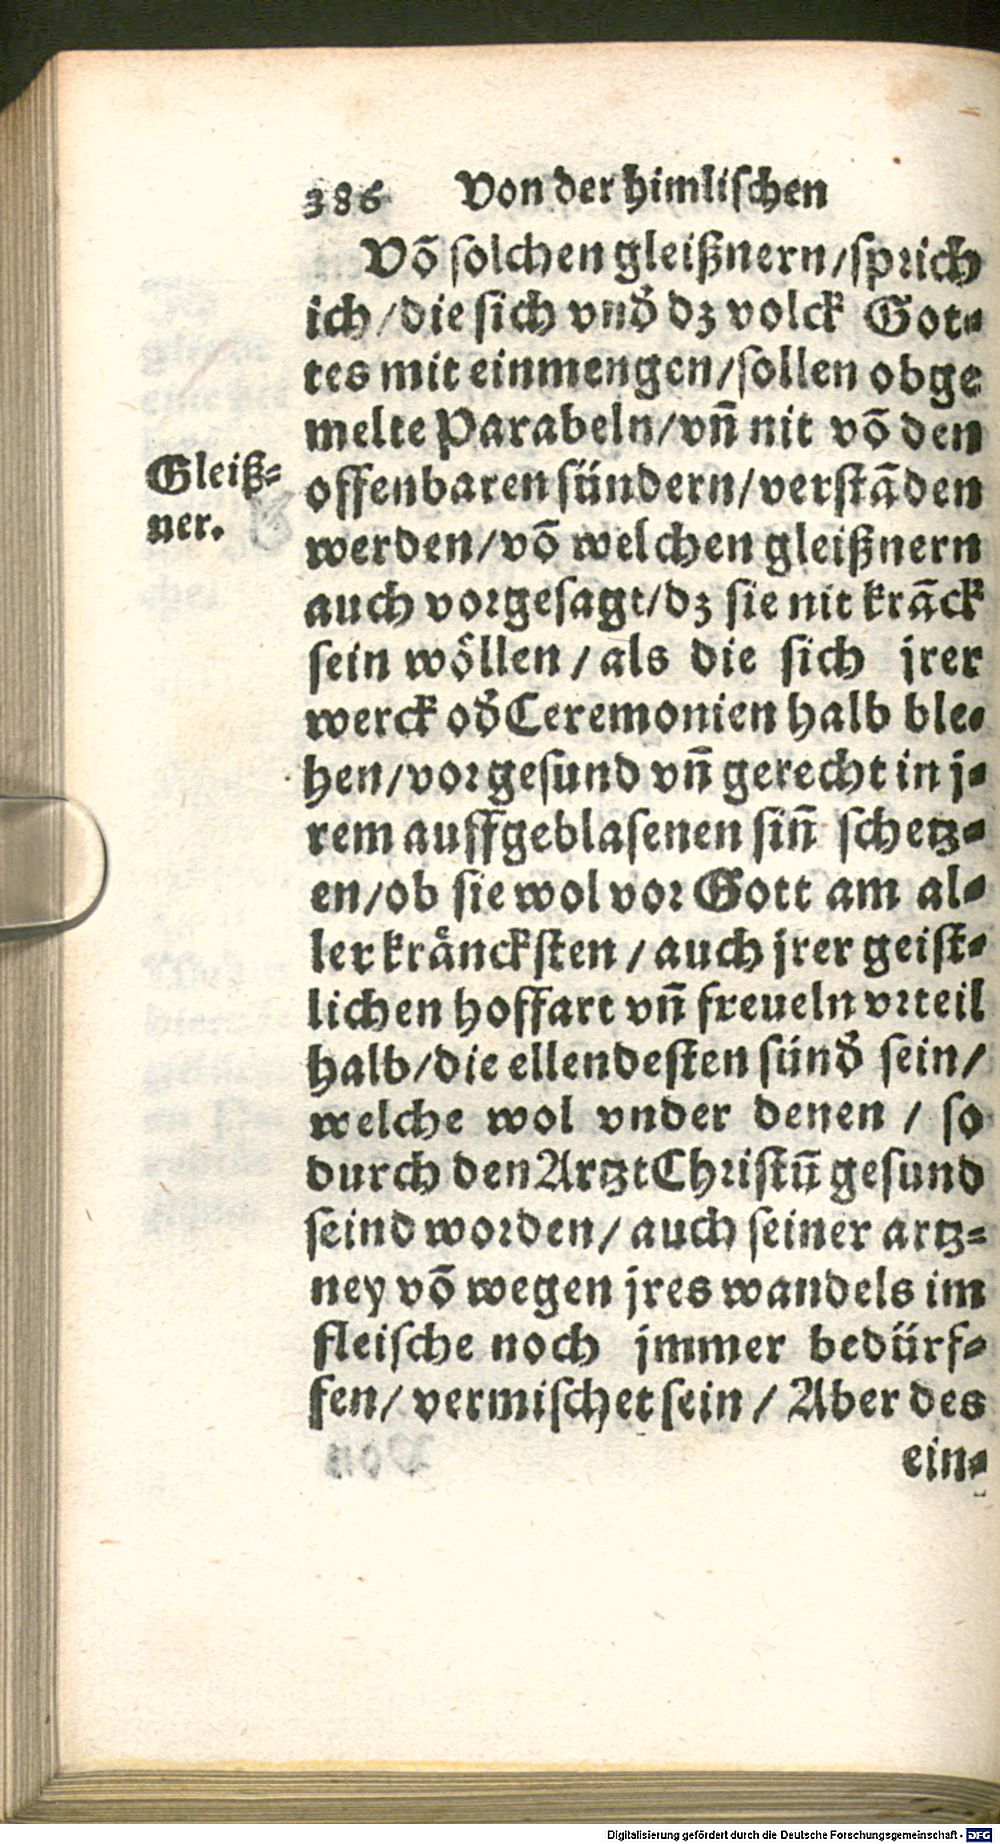 386 Von der himliſchen
Võ ſolchen gleißnern/ſprich
ich/die ſich vnd̕ dz volck Got⸗
tes mit einmengen/ſollen obge
melte Parabeln/vñ nit võ den
Gleiß⸗
ner.
offenbaren ſündern/verſtãden
werden/võ welchen gleißnern
auch vorgeſagt/dz ſie nit krãck
ſein woͤllen/als die ſich jrer
werck od̕ Ceremonien halb ble⸗
hen/vor geſund vñ gerecht in j⸗
rem auffgeblaſenen ſiñ ſchetz⸗
en/ob ſie wol vor Gott am al⸗
ler kraͤnckſten/auch jrer geiſt⸗
lichen hoffart vñ freueln vrteil
halb/die ellendeſten ſünd̕ ſein/
welche wol vnder denen/ſo
durch den Artzt Chriſtũ geſund
ſeind worden/auch ſeiner artz⸗
ney võ wegen jres wandels im
fleiſche noch jmmer bedürf⸗
fen/vermiſchet ſein/Aber des
ein⸗
Digitalisierung gefördert durch die Deutsche Forschungsgemeinschaft - DFG